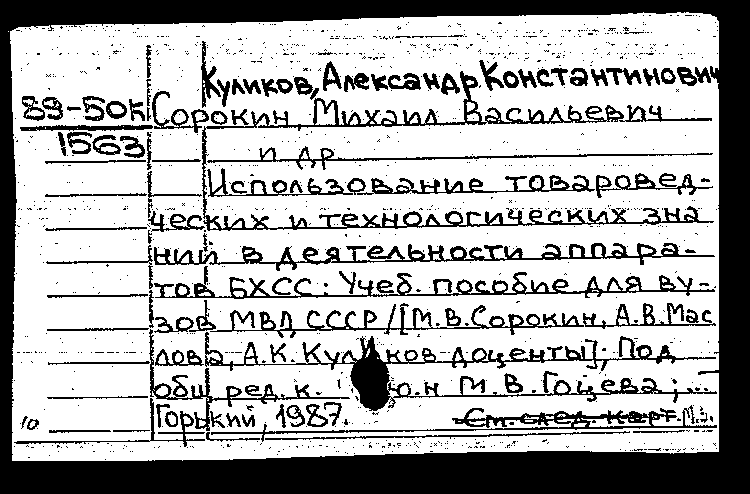 Куликов, Александр Константинович
89-50к Сорокин, Михаил Васильевич
1563 и др.
Использование товаровед-
ческих и технологических зна
ний в деятельности аппара-
тов БХСС: Учеб. пособие для ву-
зов МВД СССР/[М.В.Сорокин, А.В.Мас
лова, А.К. Куликов-доценты]; Под
общ. ред. к. ю.н М.В.Гоцева; ...
10 Горький, 1987. См. след. карт. М.З.